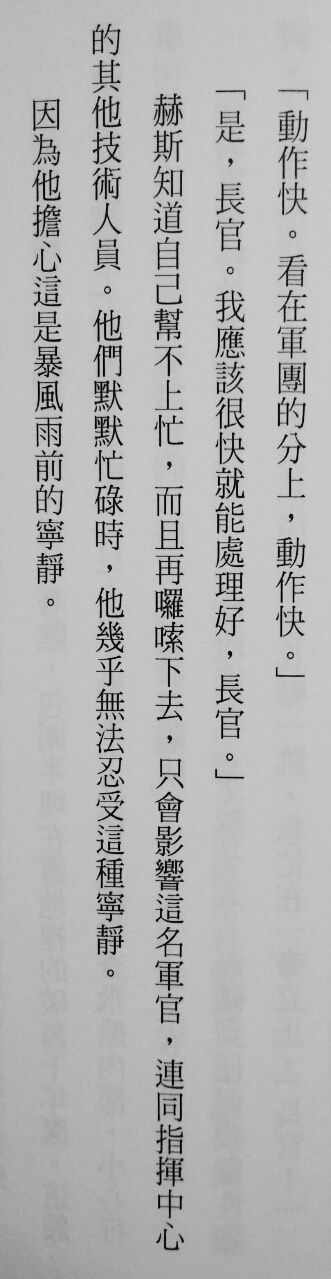 「動作快。看在軍團的分上，動作快。」
「是，長官。我應該很快就能處理好，長官。」
赫斯知道自己幫不上忙，而且再囉嗦下去，只會影響這名軍官，連同指揮中心
的其他技術人員。他們默默忙碌時，他幾乎無法忍受這種寧靜。
因為他擔心這是暴風雨前的寧靜。